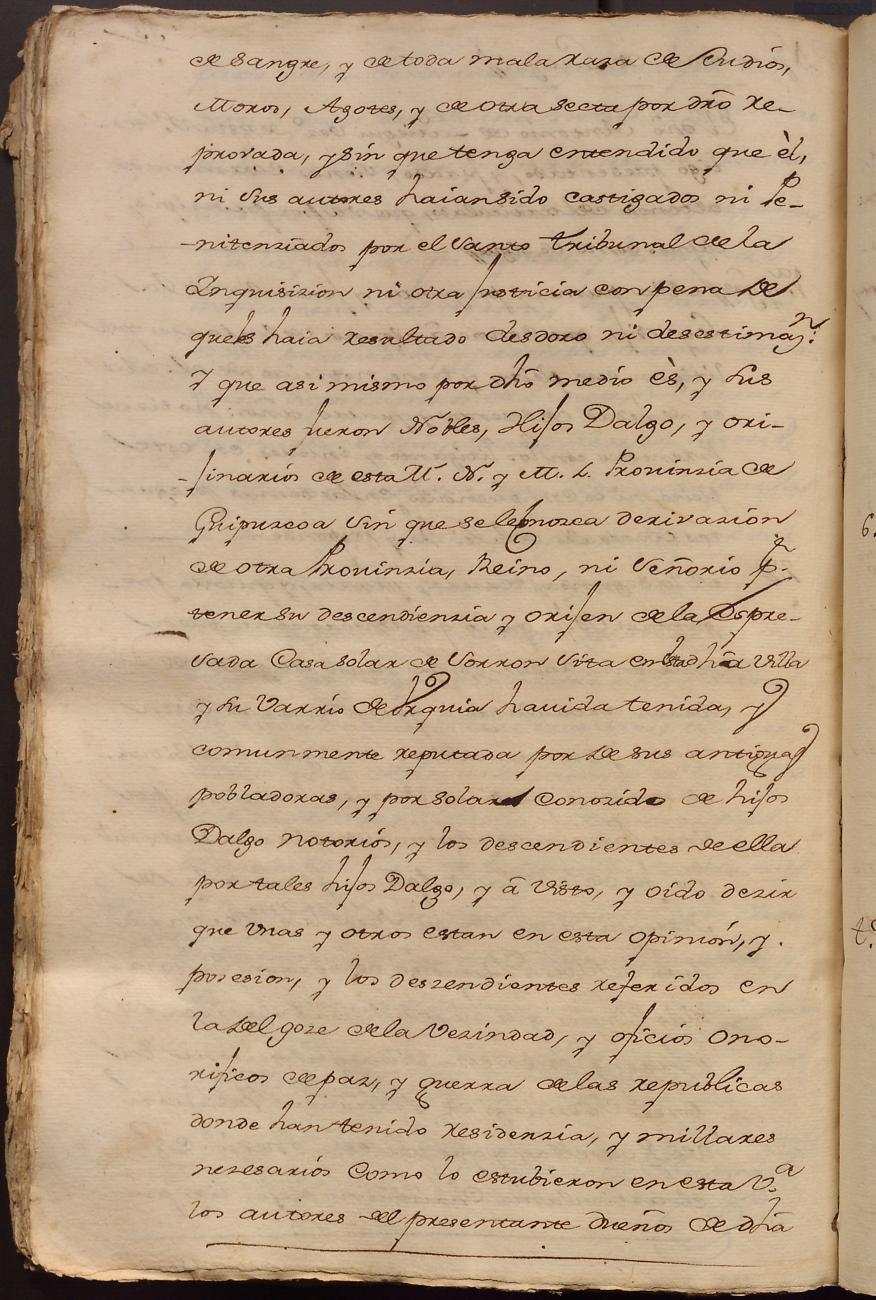 de sangre, y de toda mala raza de Judios,
Moros, Agotes, y de otra secta por dro re-
provada, y sin que tenga entendido que èl,
ni sus autores haian sido castigados ni Pe-
-nitenziados por el Santo Tribunal de la
Inquisizion ni otra Justicia con pena de
que les haia resultado desdoro ni desestimaz.n
Y que asi mismo por dho medio ès, y sus
autores fueron Nobles, Hijos Dalgo, y ori-
-jinarios de esta M. N. y M. L. Provinzia de
Guipuzcoa sin que se le Conozca derivazion
de otra Provinzia, Reino, ni Señorio p.r
tener su descendienzia y orijen de la Espre-
sada Casa solar de Sorron sita en esta dha Villa
y su Varrio de Urquia havida tenida, y
comunmente reputada por de sus antiguas
pobladoras, y por solar Conozido de hijos
Dalgo notorios, y los descendientes de ella
por tales hijos Dalgo, y â visto, y oido dezir
que unas y otros estan en esta opinion, y
posesion, y los deszendientes referidos en
la del goze de la Vezindad, y oficios ono-
rificos de paz, y guerra de las republicas
donde han tenido residenzia, y millares
nezesarios Como lo estubieron en esta V.a
los autores del presentante dueños de dha